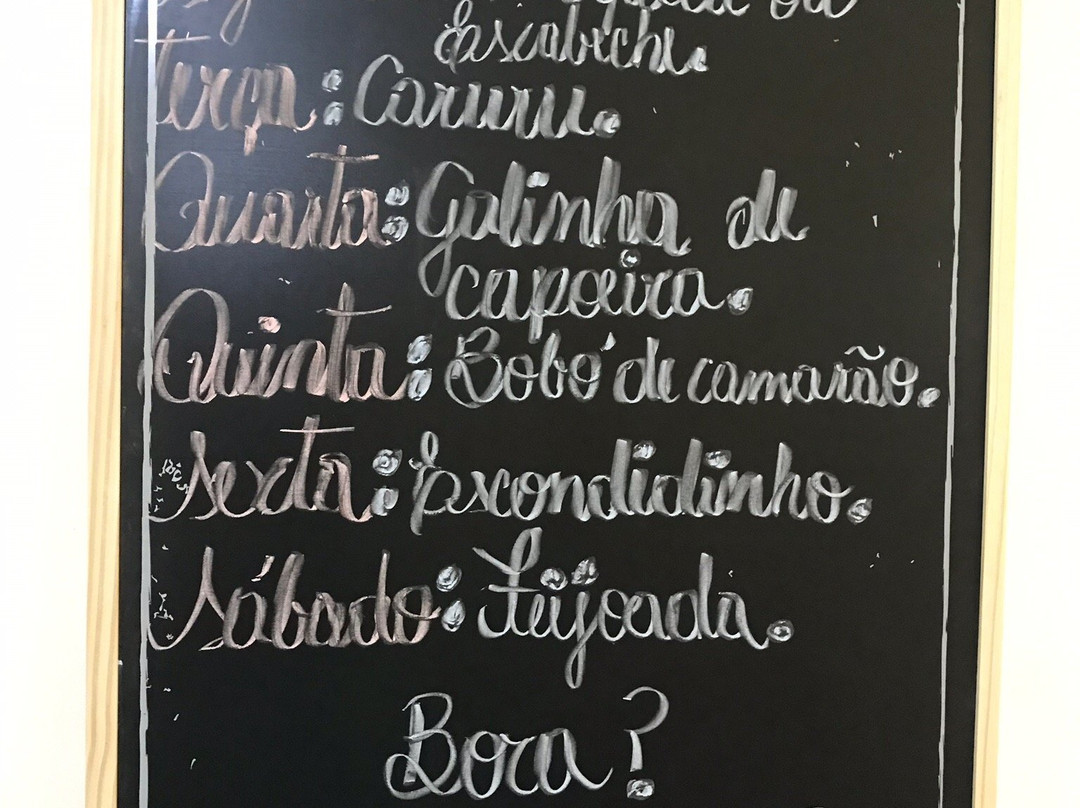 ou
Escabeche.
Terça: Caruru.
Quarta: Galinha de
capoeira.
Quinta: Bobó de camarão.
Sexta: Escondidinho.
Sábado: Feijoada.
Bora?